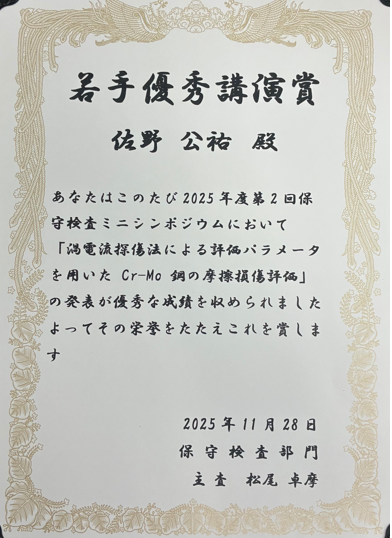 若手優秀講演賞
佐野 公祐 殿
あなたはこのたび2025年度第2回保
守検査ミニシンポジウムにおいて
「渦電流探傷法による評価パラメータ
を用いた Cr-Mo 鋼の摩擦損傷評価」
の発表が優秀な成績を収められました
よってその栄誉をたたえこれを賞しま
す
2025年11月28日
保守検査部門
主査 松尾 卓摩